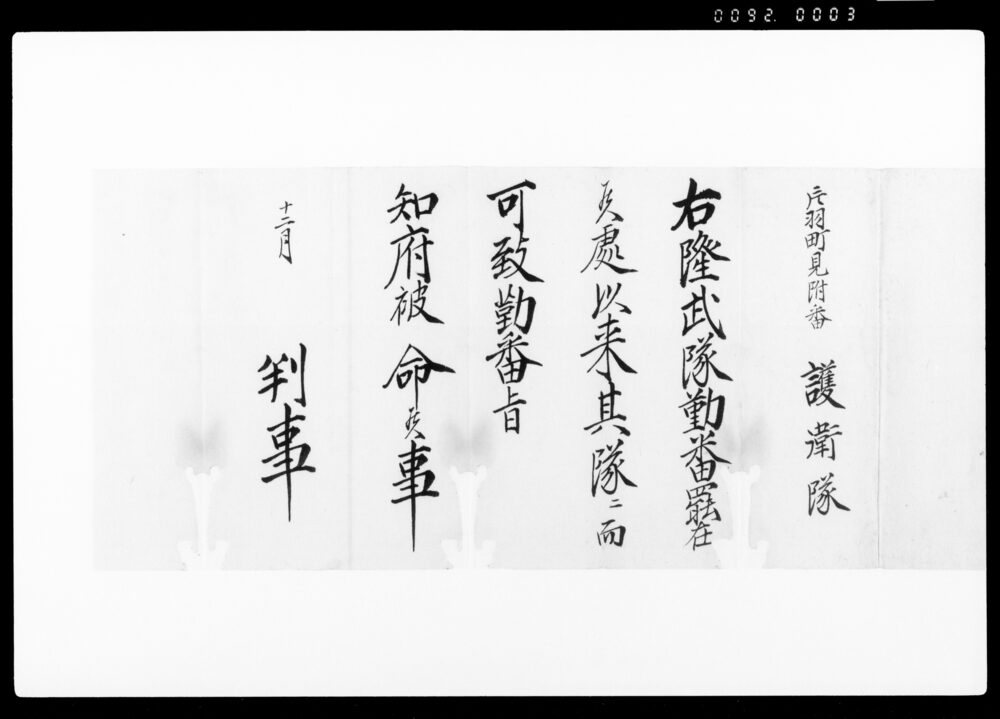 0092. 0003
片羽町見附番
護衛隊
右隆武隊勤番罷在
候處以来其隊ニ而
可致勤番旨
知府被 命候事
十二月
判事